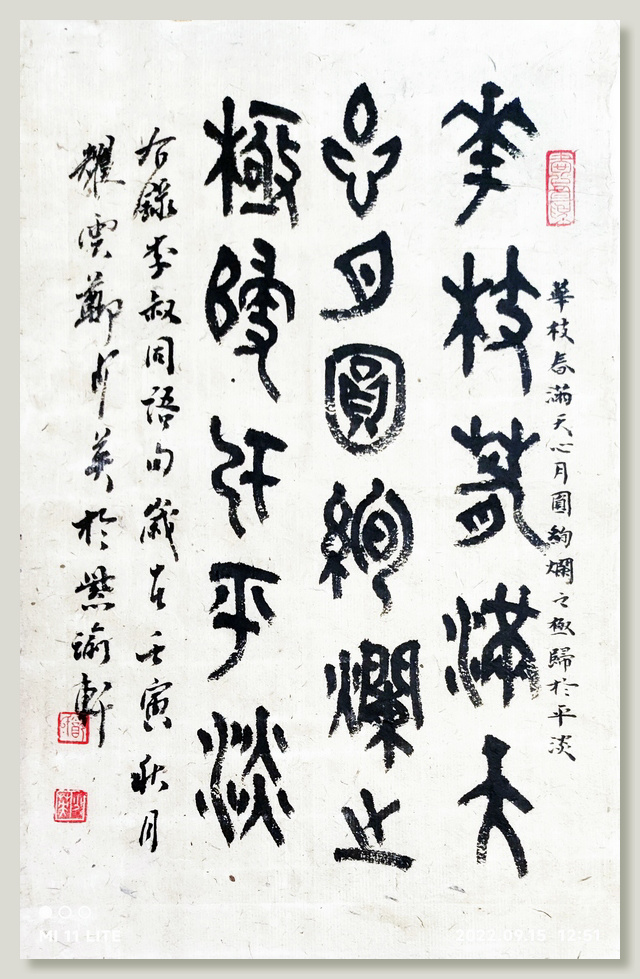 華枝春滿天心月圓絢爛之極歸於平淡
華枝春滿天
心月圓絢爛之
極歸於平淡
右錄李叔同語句歲在壬寅秋月
耀雲鄭少英於紫瑜軒
MI 11 LITE
2022.09.15 12:51